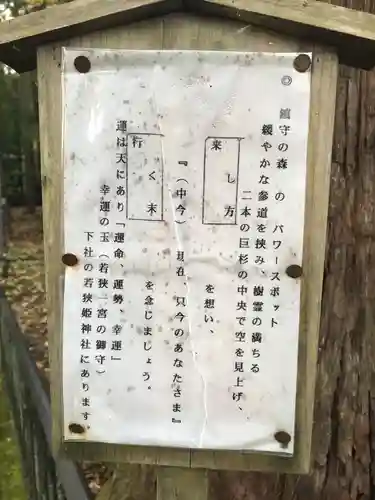 ◎ 鎮守の森 の パワースポット
緩やかな参道を挟み、樹霊の満ちる
二本の巨杉の中央で空を見上げ、
来し方 を想い、
『（中今）現在 只今のあなたさま』
行く末 を念じましょう。
運は天にあり「運命、運勢、幸運」
幸運の玉（若狭二宮の御守）
下社の若狭姫神社にあります。